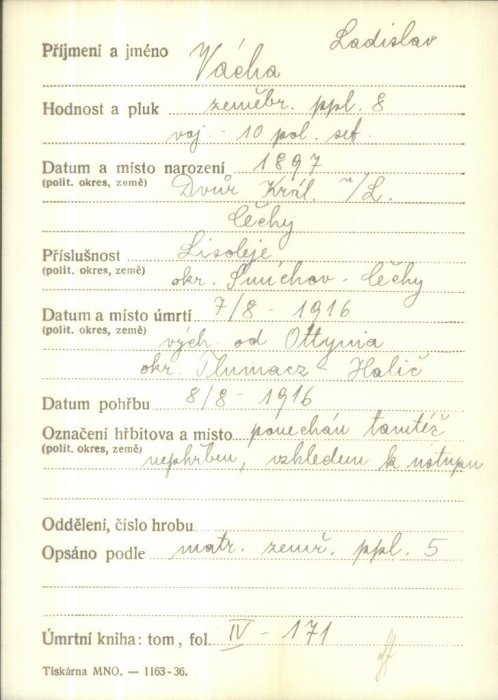 Ladislav
Příjmení a jméno Vácha
Hodnost a pluk zeměbr. ppl. 8
voj. - 10 pol. set.
Datum a místo narození 1897
(polit. okres, země) Dvůr Král. n/L.
Čechy
Příslušnost Lisoleje
(polit. okres, země) okr. Smíchov - Čechy
Datum a místo úmrtí 7/8 - 1916
(polit. okres, země) vých od Ottynia
okr. Tlumacz - Halič
Datum pohřbu 8/8 - 1916
Označení hřbitova a místo ponechán tamtéž
(polit. okres, země) nepohřben, vzhledem k ústupu
Oddělení, číslo hrobu
Opsáno podle matr. zemř. ppl. 5
Úmrtní kniha: tom, fol. IV - 171
Tiskárna MNO. — 1163-36.